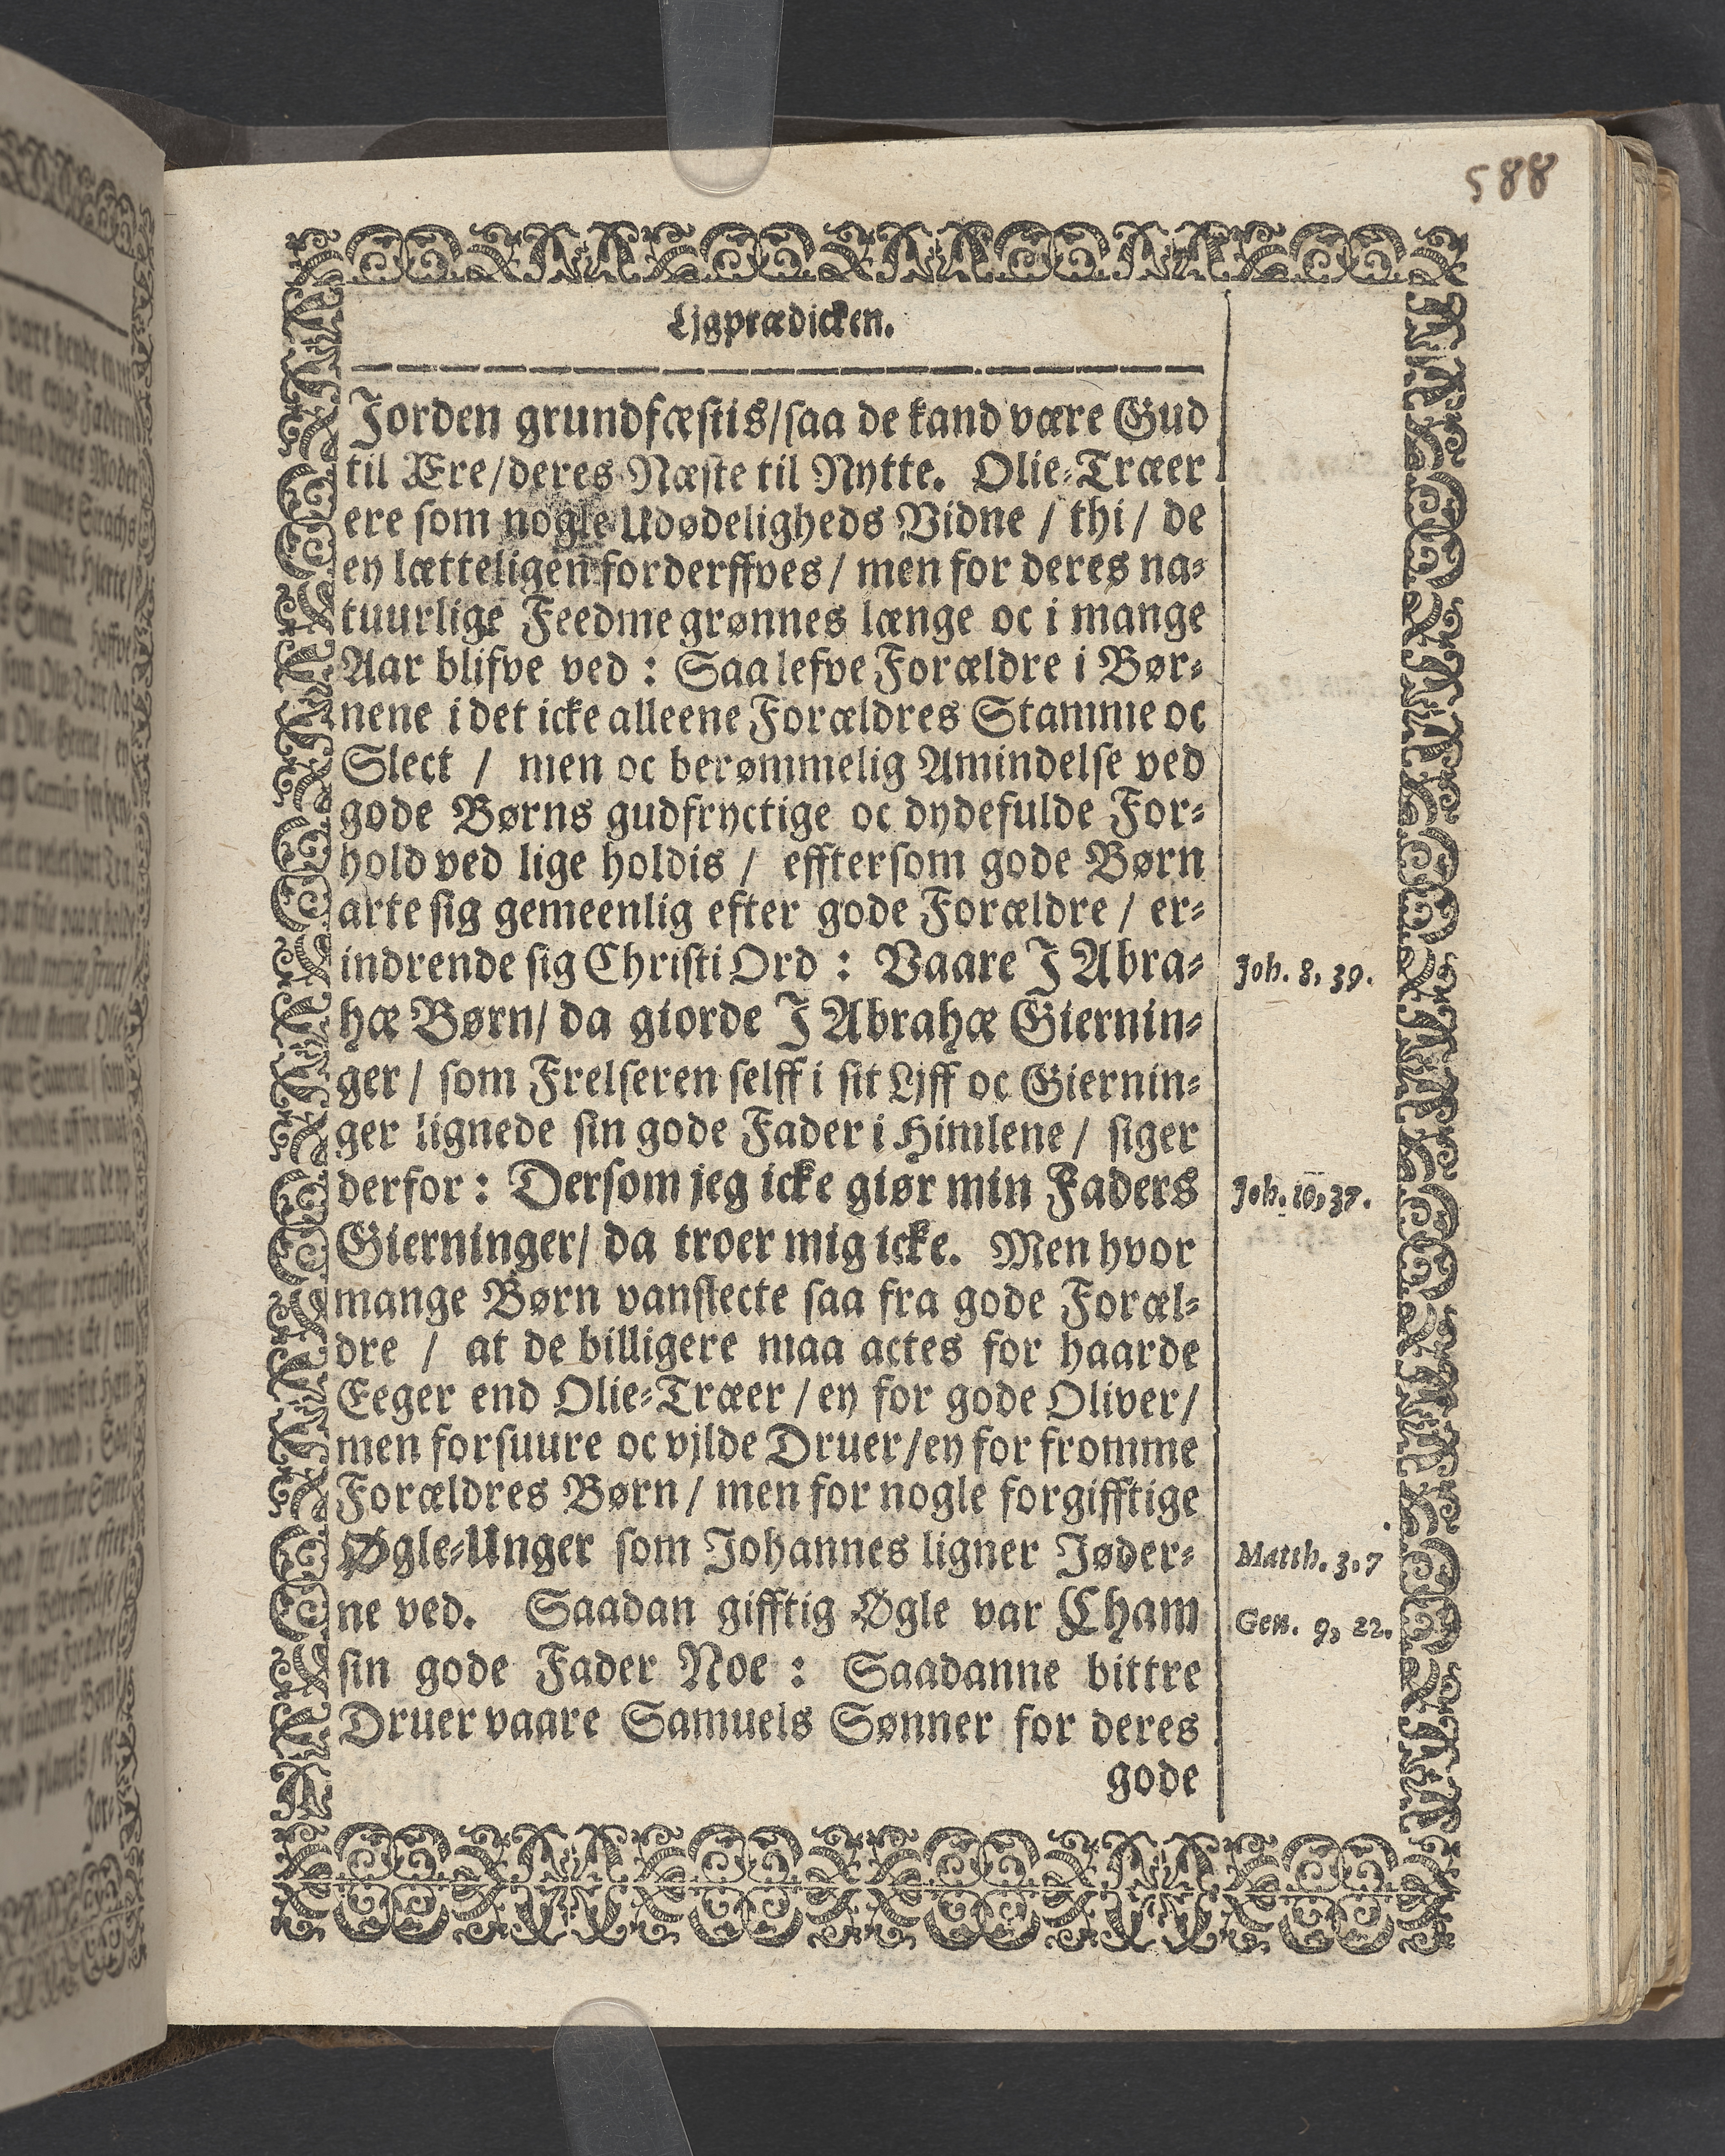 588
Ljgprædicken.
Jorden grundfæstis/saa de kand være Gud
til Ære/deres Næste til Nytte. Olie-Træer
ere som nogle Udødeligheds Vidne / thi / de
ey lætteligen forderffves / men for deres na-
tuurlige Feedme grønnes længe oc i mange
Aar blifve ved : Saa lefve Forældre i Bør-
nene i det icke alleene Forældres Stamme oc
Slect / men oc berømmelig Amindelse ved
gode Børns gudfryctige oc dydefulde For-
hold ved lige holdis / efftersom gode Børn
arte sig gemeenlig efter gode Forældre / er-
indrende sig Christi Ord : Vaare J Abra-
Joh. 8, 39.
hæ Børn/ da giorde J Abrahæ Giernin-
ger / som Frelseren selff i sit Ljff oc Giernin-
ger lignede sin gode Fader i Himlene / siger
derfor : Dersom jeg icke giør min Faders
Joh. 10, 37.
Gierninger/ da troer mig icke. Men hvor
mange Børn vanslecte saa fra gode Foræl-
dre / at de billigere maa actes for haarde
Eeger end Olie-Træer / ey for gode Oliver/
men for suure oc vjlde Druer/ey for fromme
Forældres Børn / men for nogle forgifftige
Øgle-Unger som Johannes ligner Jøder-
Matth. 3. 7
ne ved. Saadan gifftig Øgle var Cham
Gen. 9, 22.
sin gode Fader Noe : Saadanne bittre
Druer vaare Samuels Sønner for deres
gode